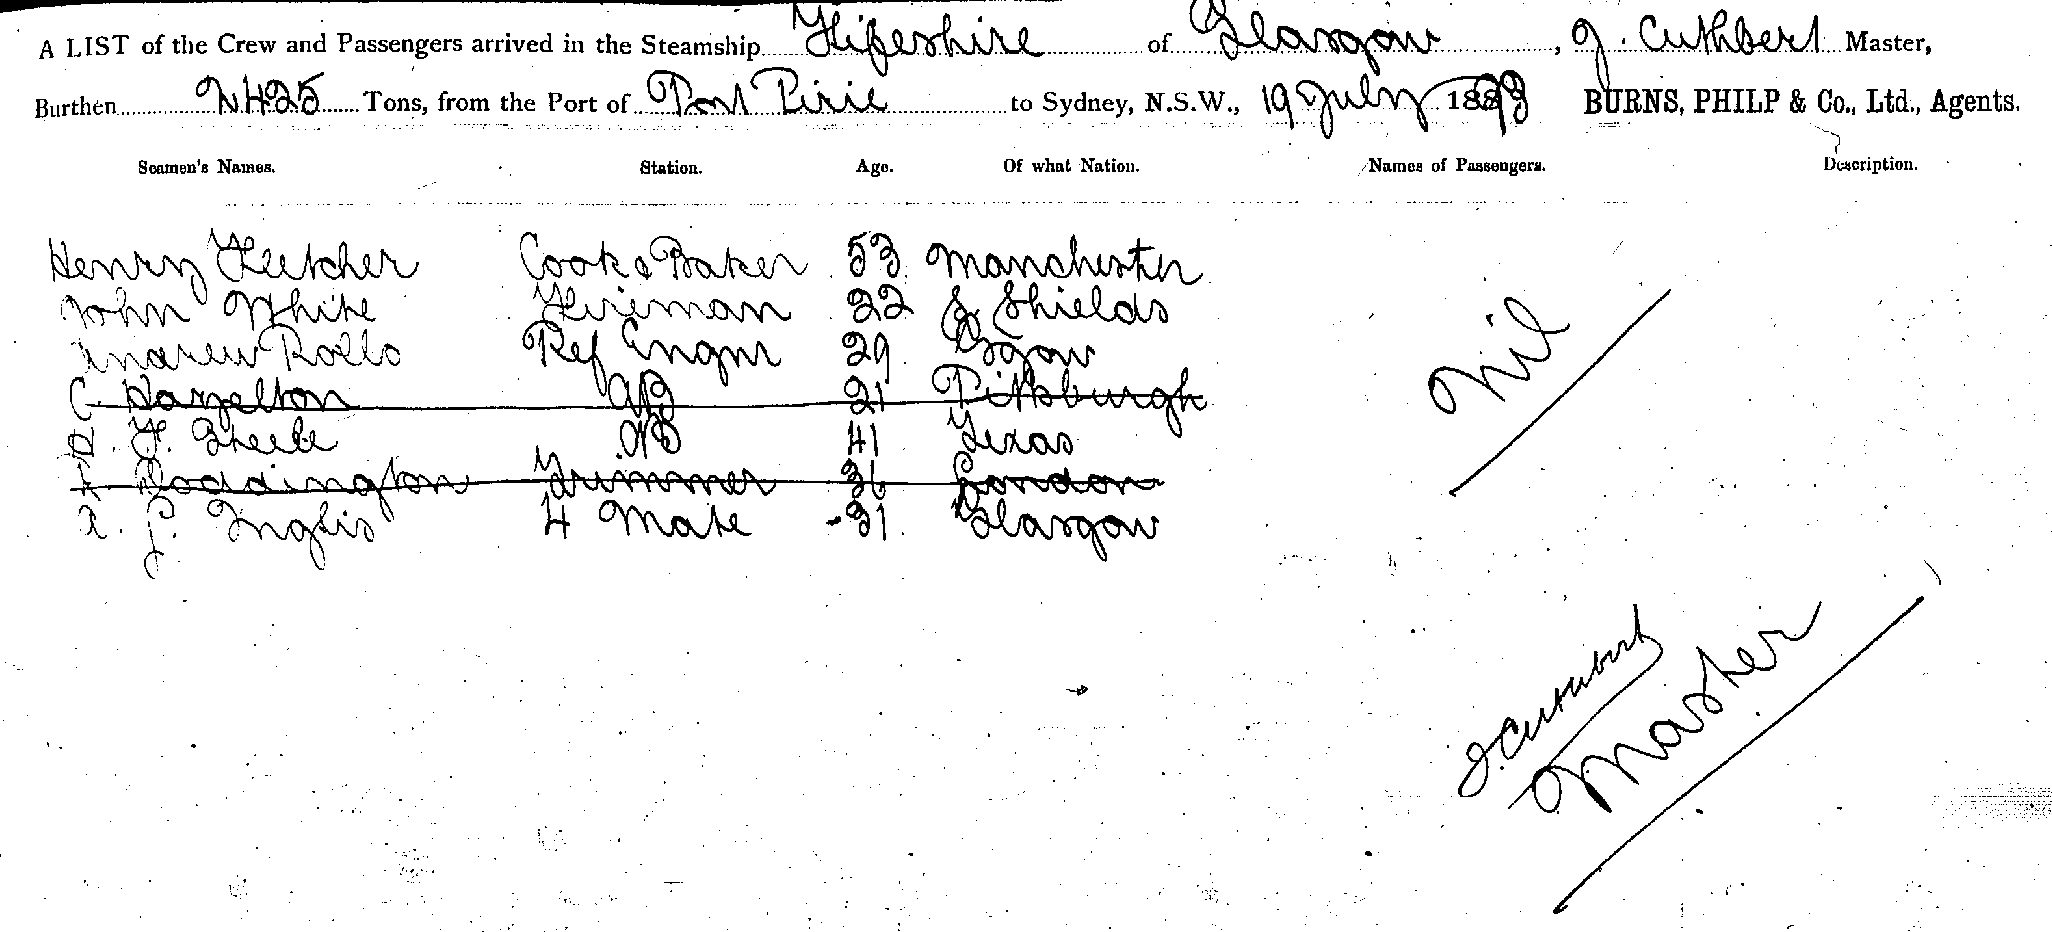 A LIST of the Crew and Passengers arrived in the Steamship Fifeshire of Glasgow, J. Cuthbert Master,
Burthen 2425 Tons, from the Port of Port Pirie to Sydney, N.S.W., 19 July 1893 BURNS, PHILP & Co., Ltd., Agents.
Seamen's Names. Station. Age. Of what Nation. Names of Passengers. Description.
Henry Fletcher Cook & Baker 53 Manchester
John White Fireman 22 S Shields
Andrew Rollo Ref Engnr 29 Gsgow
C. Hazelton AB 21 Pittsburgh
F. AB 41 Texas
Coddington Trimmer 36 London
A. J. Inglis 4 Mate 31 Glasgow
Nil
J. Cuthbert
Master